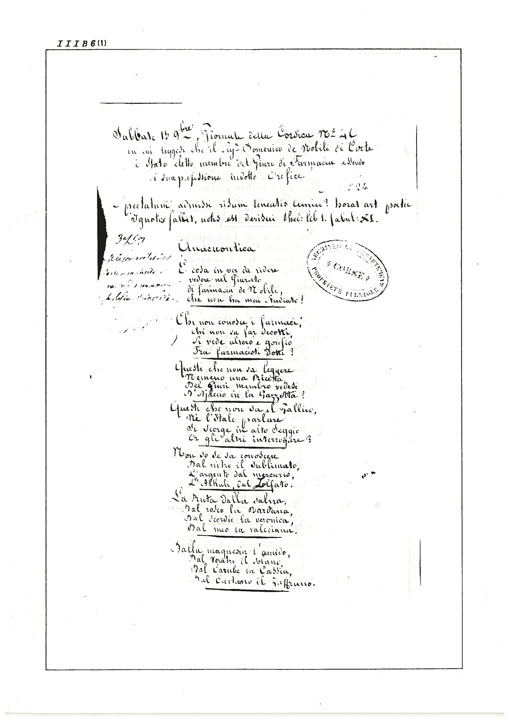 IIIB6(1)
Sabbato 15 9bre, Giornale della Corsica No 46
in cui leggesi che il sigr Domenico de Nobili di Corte
è stato eletto membro del Giurì di Farmacia essendo
di sua professione indotto Orefice
Spectatum admissi risum teneatis amici? horat art poetic
Ignotos fallit, notis est derisui Phed: lib 1. fabul: XI.
Anacreontica
ARCHIVES DÉPARTEMENTALES
CORSE
PROPRIÉTÉ PUBLIQUE
È cosa in ver da ridere
vedere nel Giurato
di farmacia de Nobili,
che non ha mai studiato!
Chi non conosce i farmaci,
chi non sa far decotti,
Si vede altero e gonfio
Fra farmacisti Dotti?
Questi che non sa leggere
Nemeno una Ricetta
Del Giurì membro vedesi
D'Ajaccio in la Gazzetta?
Questi che non sa il Gallico,
Nè l'Italo parlare
Si scorge in alto seggio
Or gli altri interrogare?
Non so se sa conoscere
Dal nitro il sublimato,
L'argento dal mercurio,
L'Alkali, dal Solfato.
La Ruta dalla salvia,
Dal rosso la Bardana,
Dal scordio la veronica,
Dal meo la valeriana.
Dalla magnesia l'amido,
Dal
Dal Carube la Cassia,
Dal Cartamo il Zaffrano.